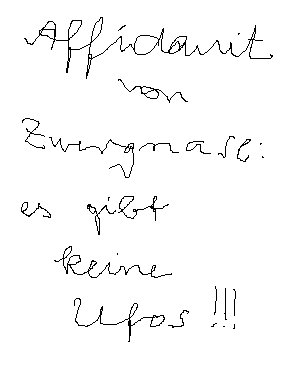 Affidavit
von
Zwergnase:
es gibt
keine
Ufos !!!